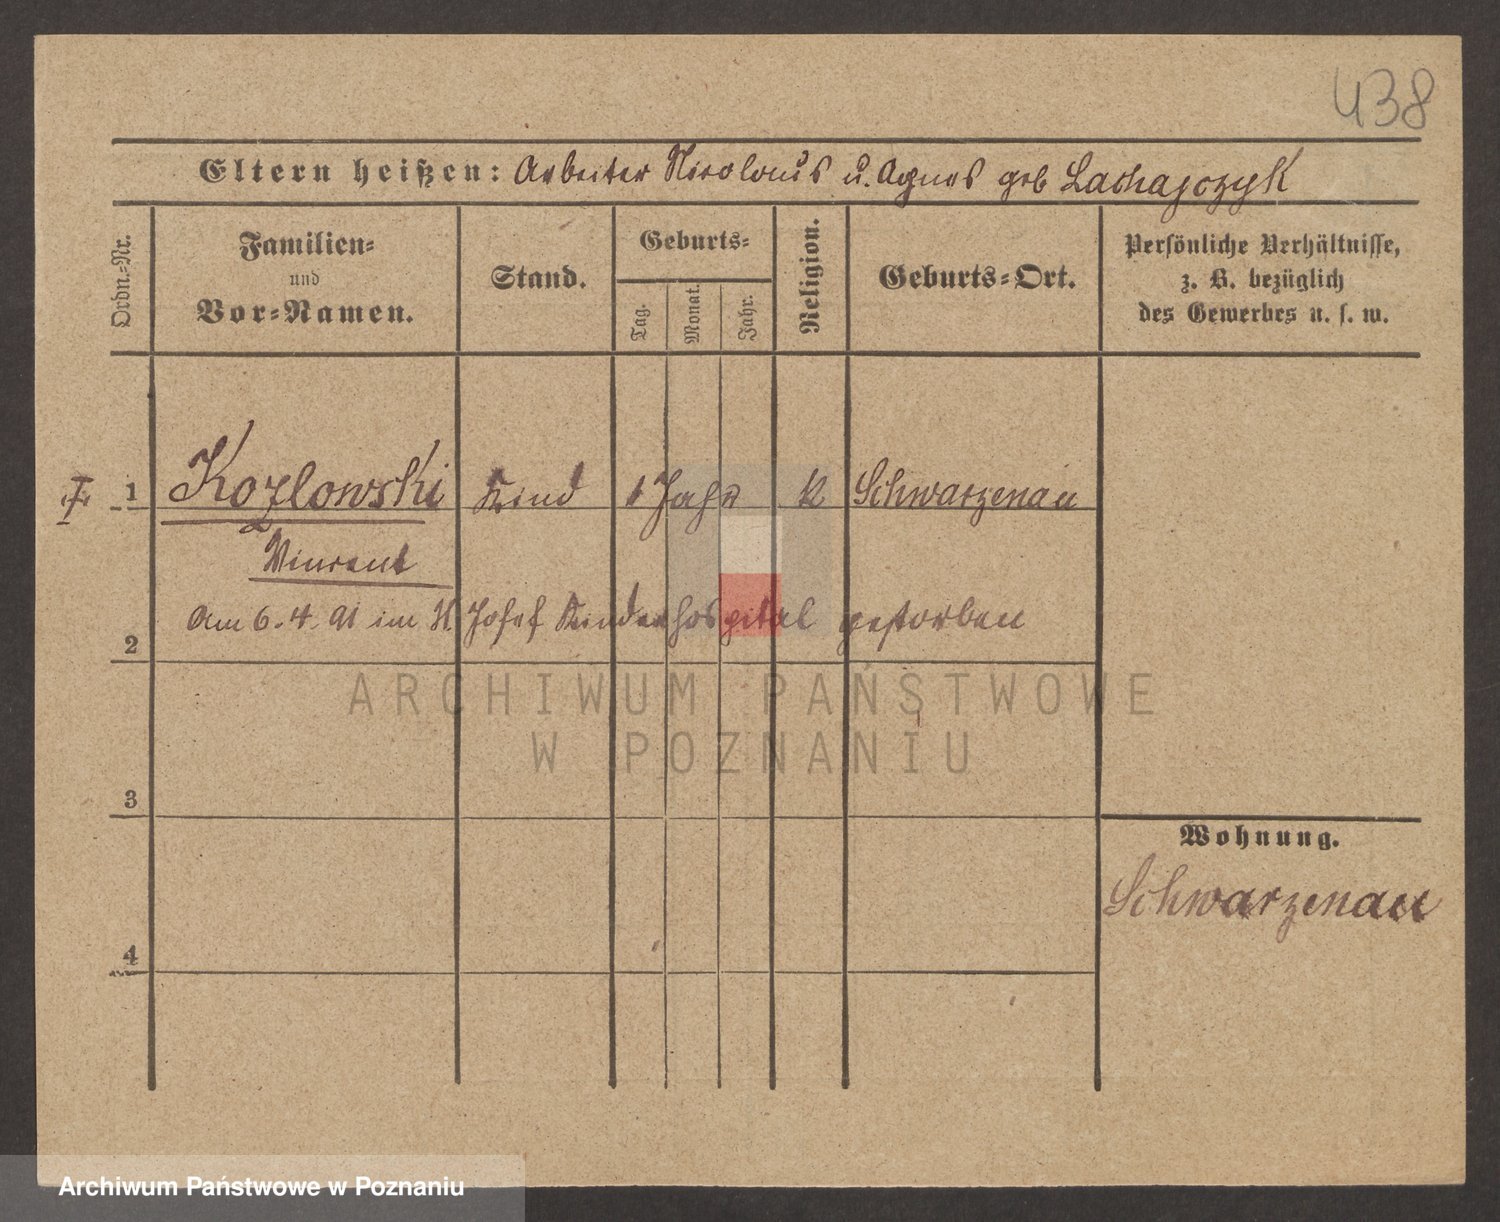 438
Eltern heißen: Arbeiter Nicolaus u. Agnes geb Lachajczyk
Ordn.-Nr.
Familien-
und
Vor-Namen.
Stand.
Geburts-
Tag.
Monat.
Jahr.
Religion.
Geburts-Ort.
Persönliche Verhältnisse,
z. B. bezüglich
des Gewerbes u. s. w.
1 Kozlowski Kind 1 Jahr k Schwarzenau
Vincent
Am 6. 4. 91 im St Josef Kinderhospital gestorben
2
ARCHIWUM PAŃSTWOWE
W POZNANIU
3
Wohnung.
Schwarzenau
4
Archiwum Państwowe w Poznaniu